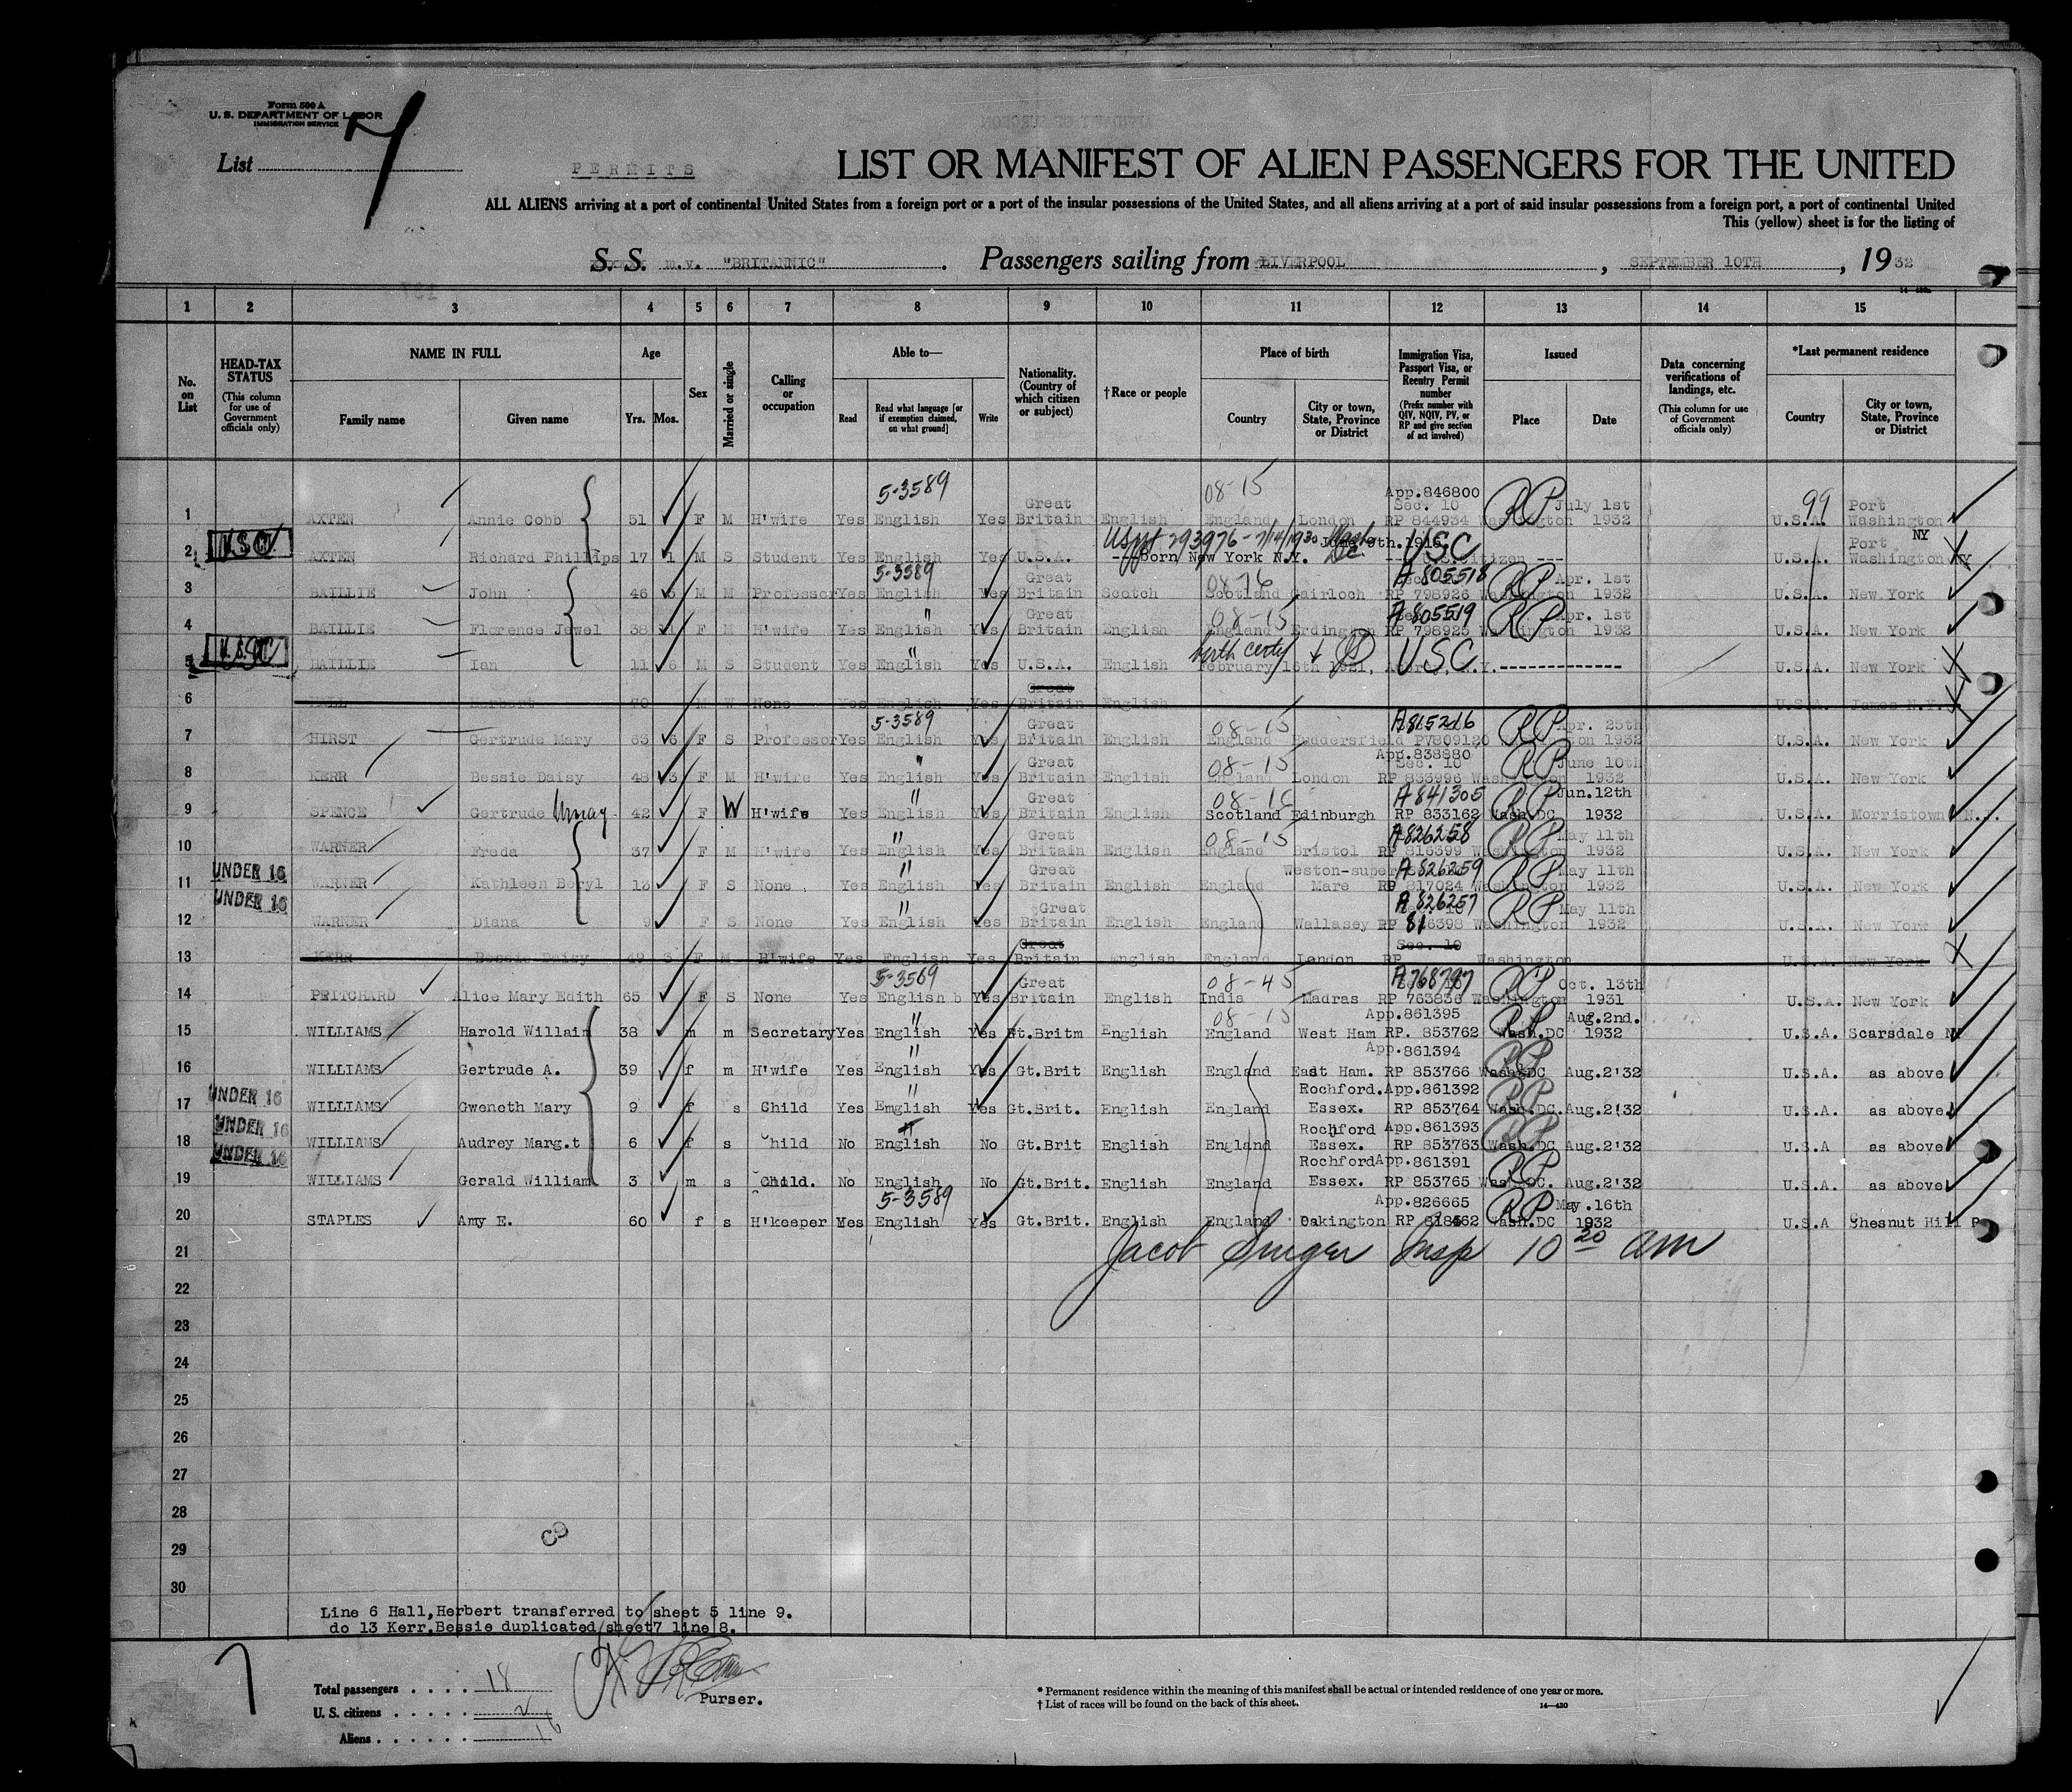 Form 500 A
U. S. DEPARTMENT OF LABOR
IMMIGRATION SERVICE
List 7
PERMITS
LIST OR MANIFEST OF ALIEN PASSENGERS FOR THE UNITED
ALL ALIENS arriving at a port of continental United States from a foreign port or a port of the insular possessions of the United States, and all aliens arriving at a port of said insular possessions from a foreign port, a port of continental United
This (yellow) sheet is for the listing of
S. S. m.v. "BRITANNIC". Passengers sailing from LIVERPOOL, SEPTEMBER 10TH, 1932
1 2 3 4 5 6 7 8 9 10 11 12 13 14 15
No. on List
HEAD-TAX STATUS (This column for use of Government officials only)
NAME IN FULL Family name Given name
Age Yrs. Mos.
Sex
Married or single
Calling or occupation
Able to— Read Read what language [or if exemption claimed, on what ground] Write
Nationality. (Country of which citizen or subject)
†Race or people
Place of birth Country City or town, State, Province or District
Immigration Visa, Passport Visa, or Reentry Permit number (Prefix number with QIV, NQIV, PV, or RP and give section of act involved)
Issued Place Date
Data concerning verifications of landings, etc. (This column for use of Government officials only)
*Last permanent residence Country City or town, State, Province or District
5-3589 08-15 App.846800 99
1 AXTEN Annie Cobb 51 F M H'wife Yes English Yes Great Britain English England London Sec. 10 RP 844934 Washington RP July 1st 1932 U.S.A. Port Washington NY
2 USC AXTEN Richard Phillips 17 1 M S Student Yes English Yes U.S.A. Born New York N.Y. USC Citizen --- U.S.A. Port Washington NY
3 BAILLIE John 46 M M Professor Yes 5-3589 English Yes Great Britain Scotch Scotland Gairloch A 805518 RP 798926 Washington RP Apr. 1st 1932 U.S.A. New York
4 BAILLIE Florence Jewel 38 F M H'wife Yes English " Yes Great Britain English 08-15 England Erdington A 805519 RP 798925 Washington RP Apr. 1st 1932 U.S.A. New York
5 USC BAILLIE Ian 11 6 M S Student Yes English " Yes U.S.A. English birth certif February 16th 1921, USC N.Y. U.S.A. New York
6 HALL Herbert 70 M W None Yes English Yes Great Britain English U.S.A. James N.Y.
7 HIRST Gertrude Mary 63 6 F S Professor Yes 5-3589 English Yes Great Britain English 08-15 England Huddersfield A815216 PV809120 RP Apr. 25th 1932 U.S.A. New York
8 KERR Bessie Daisy 48 3 F M H'wife Yes English " Yes Great Britain English 08-15 England London App.838880 Sec. 10 RP 833996 Washington RP June 10th 1932 U.S.A. New York
9 SPENCE Gertrude 42 F W H'wife Yes English " Yes Great Britain English 08-16 Scotland Edinburgh A 841305 RP 833162 Wash.DC RP Jun.12th 1932 U.S.A. Morristown N.J.
10 WARNER Freda 37 F M H'wife Yes English " Yes Great Britain English 08-15 England Bristol A826258 RP 816399 Washington RP May 11th 1932 U.S.A. New York
11 UNDER 16 WARNER Kathleen Beryl 13 F S None Yes English " Yes Great Britain English England Weston-super Mare A826259 RP 817024 Washington RP May 11th 1932 U.S.A. New York
12 UNDER 16 WARNER Diana 9 F S None Yes English " Yes Great Britain English England Wallasey A 826257 RP 816398 Washington RP May 11th 1932 U.S.A. New York
13 KERR Bessie Daisy 49 3 F M H'wife Yes English Yes Great Britain English England London Sec. 10 RP Washington U.S.A. New York
14 PRITCHARD Alice Mary Edith 65 F S None Yes 5-3569 English b Yes Great Britain English 08-45 India Madras A768797 RP 763836 Washington RP Oct. 13th 1931 U.S.A. New York
15 WILLIAMS Harold Willain 38 m m Secretary Yes English " Yes Gt.Britm English 08-15 England West Ham App.861395 RP. 853762 Wash.DC RP Aug.2nd. 1932 U.S.A. Scarsdale NY
16 WILLIAMS Gertrude A. 39 f m H'wife Yes English " Yes Gt.Brit English England East Ham. App.861394 RP 853766 Wash.DC RP Aug.2'32 U.S.A. as above
17 UNDER 16 WILLIAMS Gwenoth Mary 9 f s Child Yes Emglish " Yes Gt.Brit. English England Rochford. Essex. App.861392 RP 853764 Wash.DC. RP Aug.2'32 U.S.A. as above
18 UNDER 16 WILLIAMS Audrey Marg.t 6 f s Child No English " No Gt.Brit English England Rochford Essex. App.861393 RP 853763 Wash.DC RP Aug.2'32 U.S.A as above
19 UNDER 16 WILLIAMS Gerald William 3 m s Child. No English No Gt.Brit. English England Rochford Essex. App.861391 RP 853765 Wash.DC. RP Aug.2'32 U.S.A. as above
20 STAPLES Amy E. 60 f s H'keeper Yes 5-3589 English Yes Gt.Brit. English England Oakington App.826665 RP 818462 Wash.DC RP May.16th 1932 U.S.A Chesnut Hill P
21 Jacob Singer Insp 10 20 am
22
23
24
25
26
27
28
29
30
Line 6 Hall,Herbert transferred to sheet 5 line 9.
do 13 Kerr.Bessie duplicated/sheet7 line 8.
7
Total passengers . . . . 18
U. S. citizens . . . . . 2
Aliens . . . . . . 16
Purser.
* Permanent residence within the meaning of this manifest shall be actual or intended residence of one year or more.
† List of races will be found on the back of this sheet.
14—430